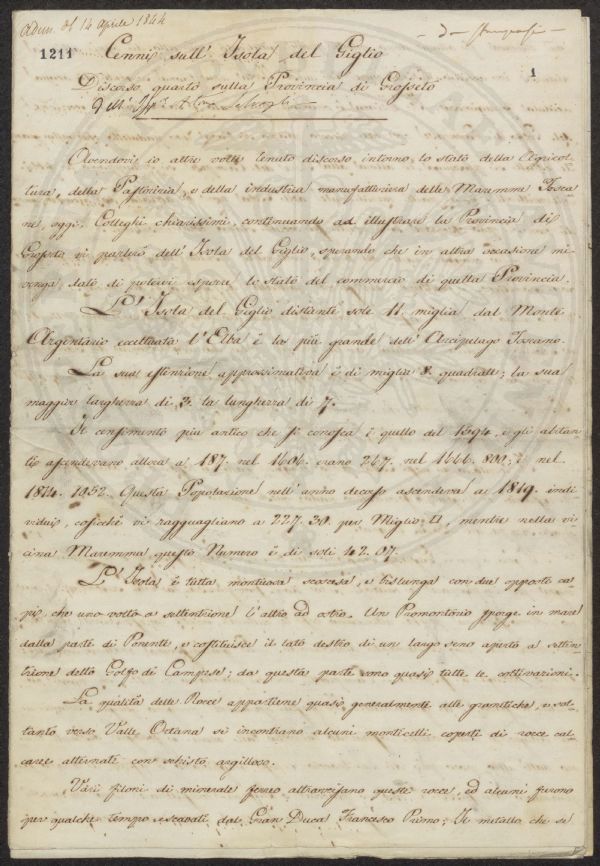 Adun. of 14 Aprile 1844
1211
1
Cenni sull' Isola del Giglio
Discorso quarto sulla Provincia di Grosseto
Avendovi io altre volte tenuto discorso intorno lo stato della Agricol
tura, della Pastorizia, e della industria manufatturiera delle Maremme Tosca
ne, oggi, Colleghi chiarissimi, continuando ad illustrare la Provincia di
Grosseto vi parlerò dell' Isola del Giglio, sperando che in altra occasione mi
venga dato di potervi esporre lo stato del commercio di quella Provincia.
L' Isola del Giglio distante sole 11 miglia dal Monte
Argentario eccettuata l' Elba è la più grande dell' Arcipelago Toscano.
La sua estenzione approssimativa è di miglia 8. quadrate; la sua
maggior larghezza di 3. la lunghezza di 7.
Il censimento più antico che si conosca è quello del 1594, e gli abitan
ti ascendevano allora a 187. nel 1606. erano 267. nel 1666. 800; e nel
1814. 1052. Questa Popolazione nell' anno decorso ascendeva a 1819. indi
vidui, cosicchè vi ragguagliano a 227. 30. per Miglio □, mentre nella vi
cina Maremma questo Numero è di soli 42. 07.
L' Isola è tutta montuosa scoscesa, e bislunga con due opposte ca
pi, che uno volto a settentrione l' altro ad ostro. Un Promontorio sporge in mare
dalla parte di Ponente, e costituisce il lato destro di un largo seno aperto a setten
trione detto Golfo di Campese; da questa parte sono quasi tutte le coltivazioni.
La qualità delle Rocce appartiene quasi generalmente alle granitiche, e sol
tanto verso Valle Ortana si incontrano alcuni monticelli coperti di rocce cal
caree alternate con schisto argilloso.
Varj filoni di minerale ferreo attraversano queste rocce, ed alcuni furono
per qualche tempo escavati dal Gran Duca Francesco Primo; Il metallo che si